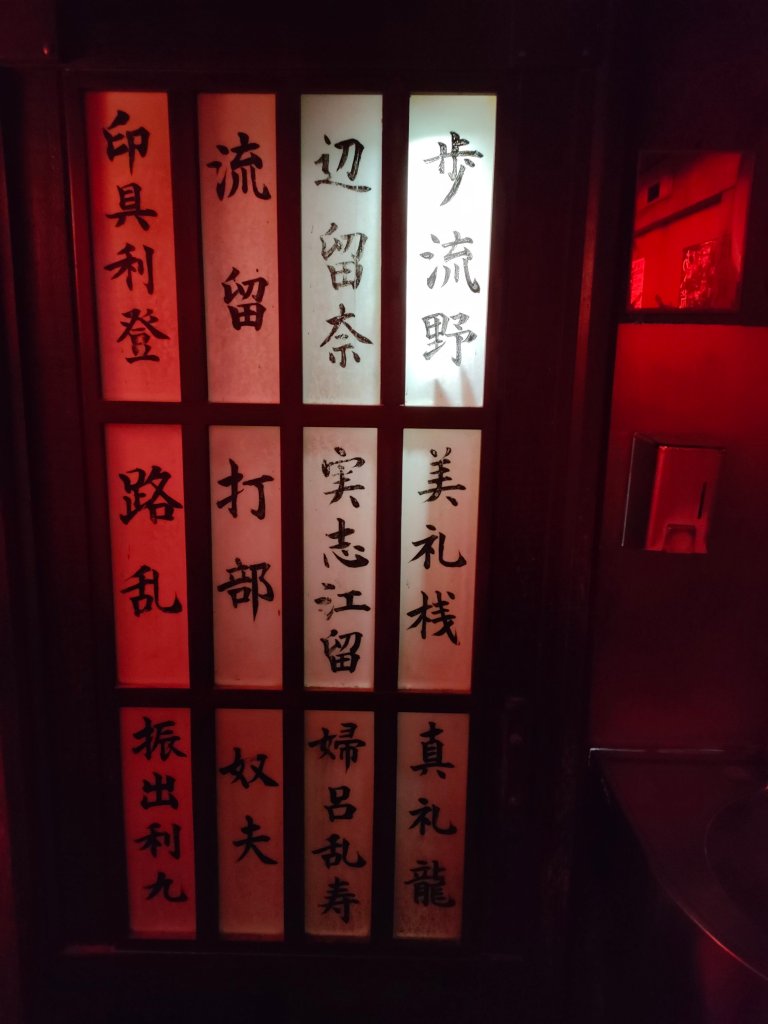 歩流野
辺留奈
流留
印具利登
美礼桟
実志江留
打部
路乱
真礼龍
婦呂乱寿
奴夫
振出利九